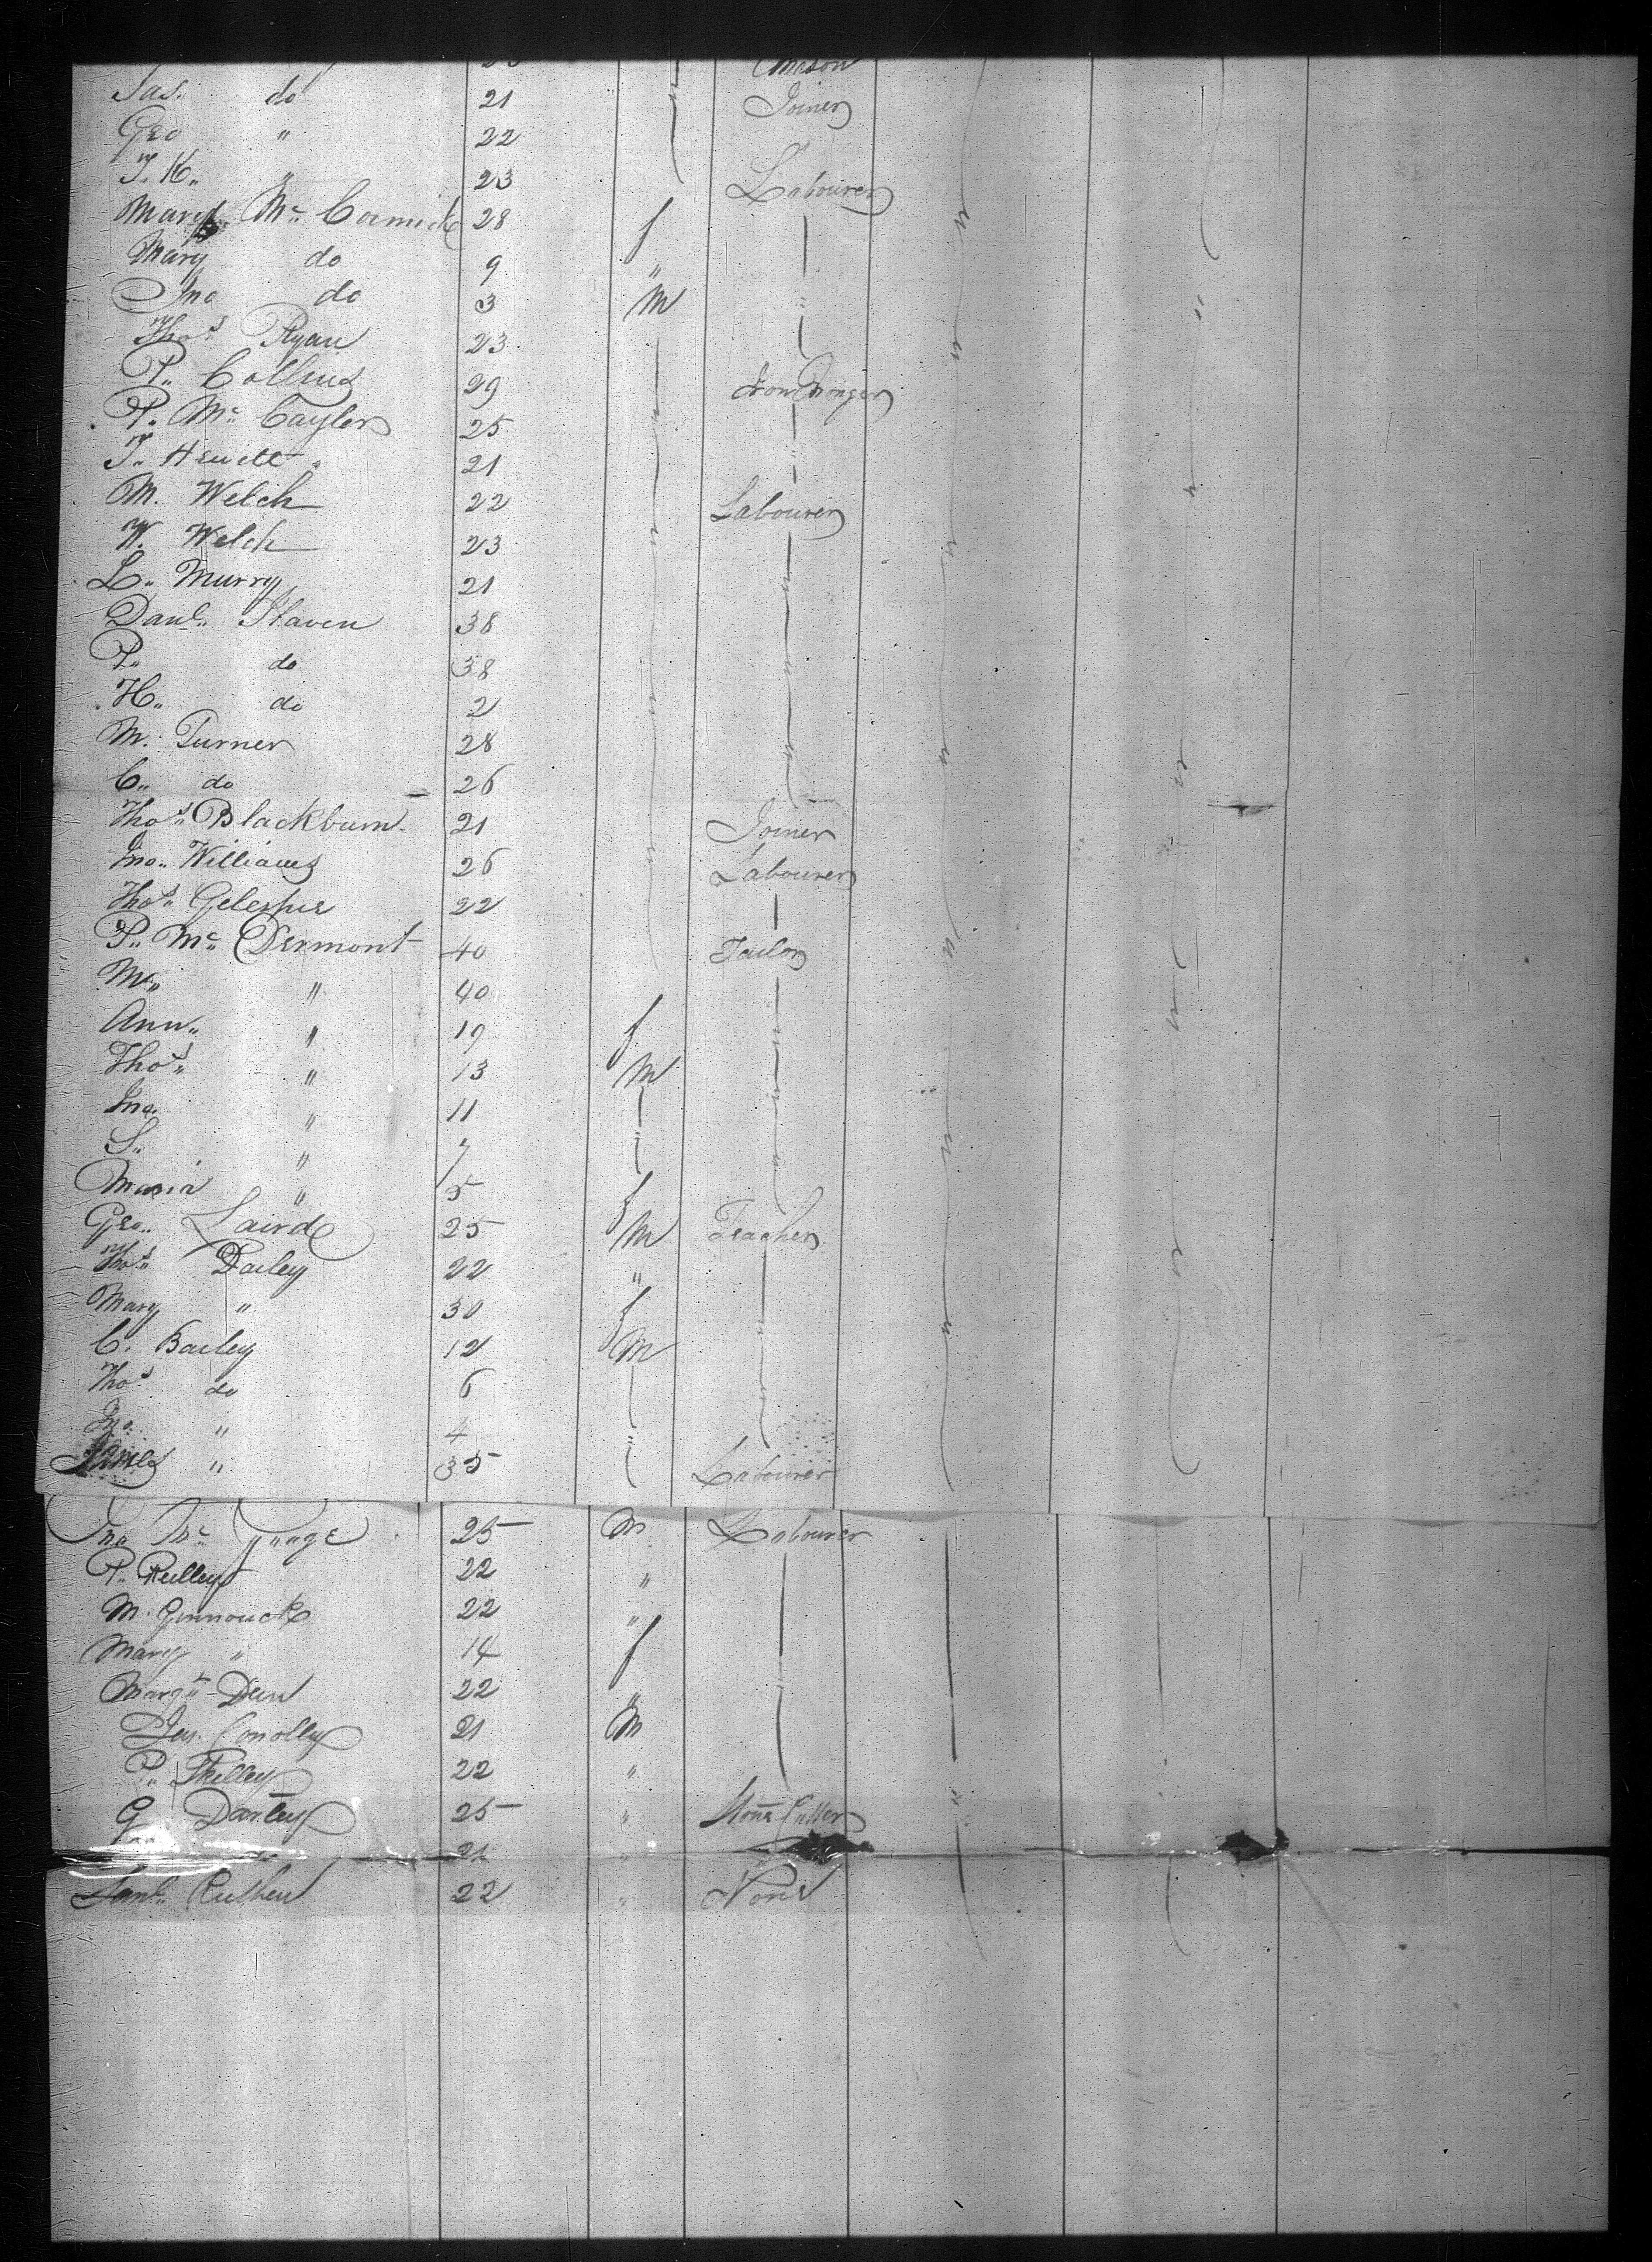 Mason
Jas. do 21 Joiner
Geo " 22
J. K. " 23 Labourer
Margt. Mc. Cormick 28 f
Mary do 9 "
Jno do 3 M "
Thos. Ryan 23
P. Collins 29 Iron Monger
P. Mc. Cayler 25
J. Hewett 21 "
M. Welch 22 Labourer
W. Welch 23
L. Murry 21
Danl. Slaven 38
P. do 38
H. do 2
M. Turner 28
C. do 26
Thos. Blackburn 21 Joiner
Jno. Williams 26 Labourer
Thos. Gelespie 22
P. Mc. Dermont 40 Tailor
M. " 40
Ann " 19 f
Thos. " 13 M
Jno. " 11
S. " 7 "
Maria " 5 f
Geo. Laird 25 M Teacher
Thos. Dailey 22 "
Mary " 30 f
C. Bailey 12 M
Thos. do 6
Jno. " 4 "
James " 35 Labourer
Jno Mc. 25 M Labourer
P. Reilley 22 "
M. Ginnouck 22 "
Mary " 14 f
Margt. Dein 22 "
Conolly 21 M
P. Skelley 22 "
G Darley 25 " Stone Cutter
do 21 "
Saml. Ruthen 22 " None